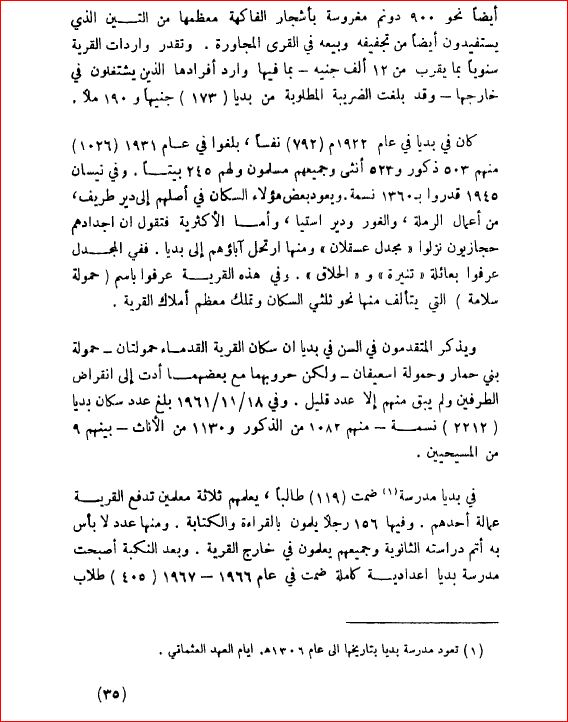 أيضاً نحو ٩٠٠ دونم مغروسة بأشجار الفاكهة معظمها من التـــين الذي
يستفيدون أيضاً من تجفيفه وبيعه في القرى المجاورة . وتقدر واردات القرية
سنوياً بما يقرب من ١٢ ألف جنيه – بما فيها وارد أفرادها الذين يشتغلون في
خارجها – وقد بلغت الضريبة المطلوبة من بديا ( ١٧٣ ) جنيهاً و ١٩٠ ملاً .
كان في بديا في عام ١٩٢٢م (٧٩٢) نفساً ، بلغوا في عـــام ١٩٣١ (١٠٢٦)
منهم ٥٠٣ ذكور و٥٢٣ أنثى وجميعهم مسلمون ولهم ٢٤٥ بيتـــاً . وفي نيسان
١٩٤٥ قدروا بـ١٣٦٠ نسمة. ويعود بعض هؤلاء السكان في أصلهم إلى دير طريف،
من أعمال الرملة ، والغور ودير استيا ، وأمـــا الأكثرية فتقول ان اجدادهم
حجازيون نزلوا « مجدل عسقلان » ومنها ارتحل آباؤهم إلى بديا . ففي المجـدل
عرفوا بعائلة « تنيرة » و « الحلاق » . وفي هذه القريـــة عرفوا باسم ( حمولة
سلامة ) التي يتألف منها نحو ثلثي السكان وتملك معظم أملاك القرية .
ويذكر المتقدمون في السن في بديا ان سكان القرية القدمـاء حمولتان – حمولة
بني حمار وحمولة اسعيفان – ولكن حروبهما مع بعضهمـــا أدت إلى انقراض
الطرفين ولم يبق منهم إلا عدد قليل . وفي ١٩٦١/١١/١٨ بلغ عدد سكان بديا
( ٢٢١٢ ) نسمـــة – منهم ١٠٨٢ من الذكور و ١١٣٠ من الأناث – بينهم ٩
من المسيحيين .
في بديا مدرسة (١) ضمت (١١٩) طالباً ، يعلمهم ثلاثة معلمين تدفع القريـــة
عمالة أحدهم . وفيها ١٥٦ رجلاً يلمون بالقراءة والكتابة . ومنها عدد لا بأس
به أتم دراسته الثانوية وجميعهم يعلمون في خارج القرية . وبعد النكبة أصبحت
مدرسة بديا اعداديـــة كاملة ضمت في عام ١٩٦٦ – ١٩٦٧ ( ٤٠٥ ) طلاب
(١) تعود مدرسة بديا بتاريخها الى عام ١٣٠٦هـ. ايام العهد العثماقي .
(٣٥)